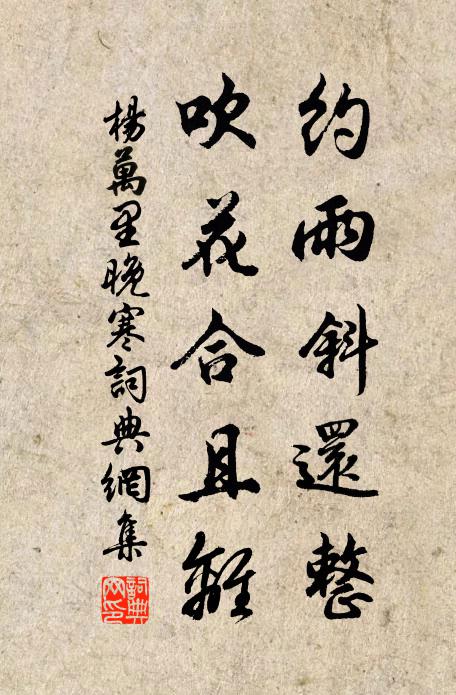 約雨斜還整
吹花合且離
楊萬里晚寒詞典網集
詞典網印